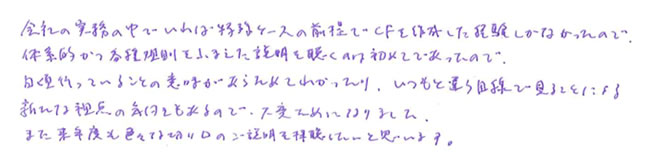 会社の実務の中でいわば特殊ケースの前提でCFを作成した経験しかなかったので、
体系的かつ各種規則をふまえた説明を聴くのは初めてであったので、
日頃行っていることの意味があらためてわかったり、いつもと違う目線で見ることによる
新たな視点の気付きもあるので、大変ためになりました。
また来年度も色々な切り口のご説明を拝聴したいと思います。